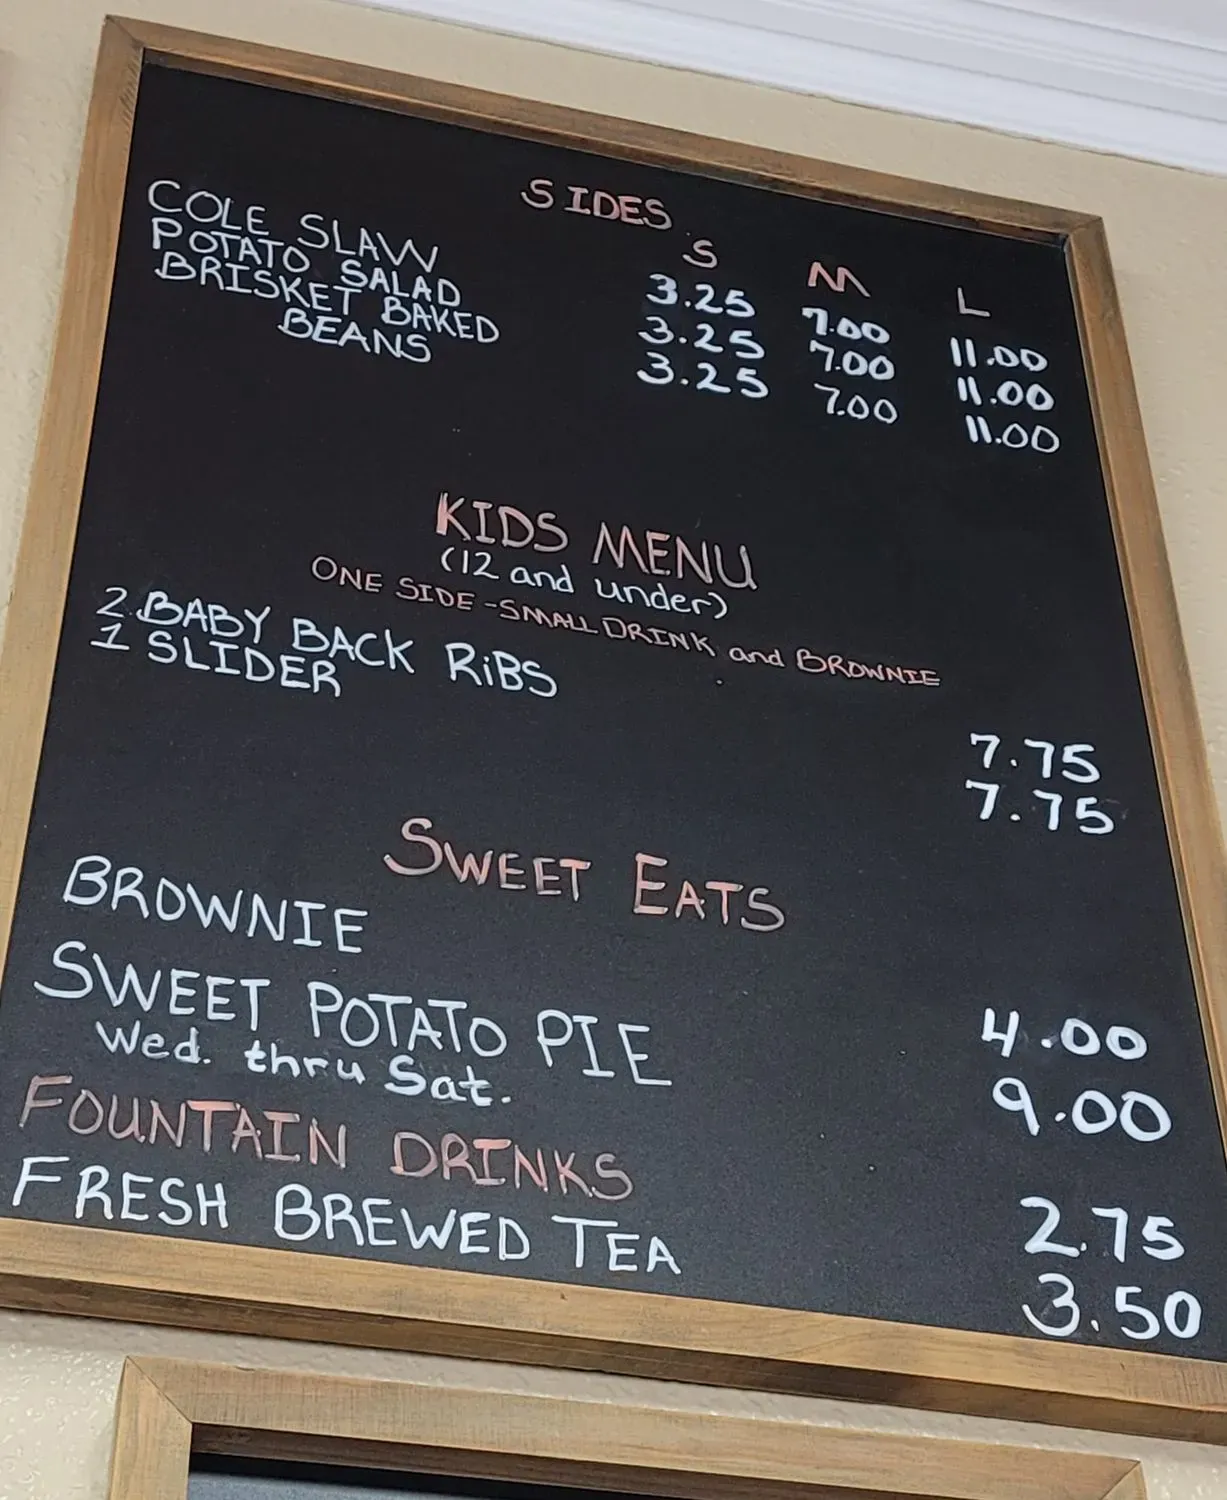 SIDES
S M L
COLE SLAW 3.25 7.00 11.00
POTATO SALAD 3.25 7.00 11.00
BRISKET BAKED 3.25 7.00 11.00
BEANS
KIDS MENU
(12 and under)
ONE SIDE - SMALL DRINK and BROWNIE
2 BABY BACK RiBS 7.75
1 SLIDER 7.75
SWEET EATS
BROWNIE 4.00
SWEET POTATO PIE 9.00
Wed. thru Sat.
FOUNTAIN DRINKS 2.75
FRESH BREWED TEA 3.50